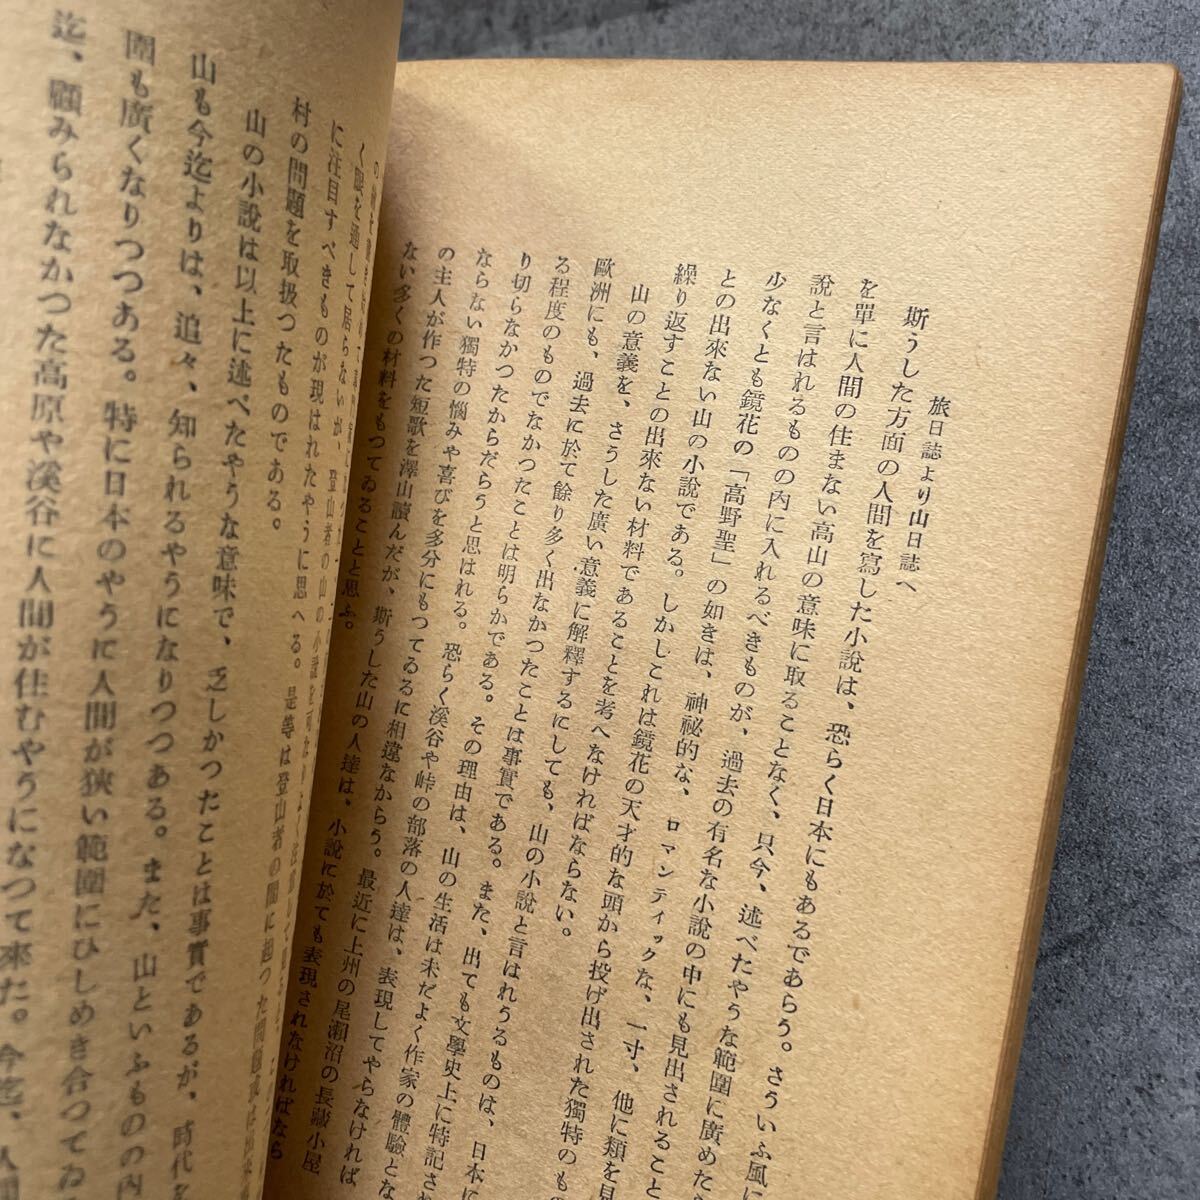 旅日誌より山日誌へ
斯うした方面の人間を寫した小說は、恐らく日本にもあるであらう。さういふ風に
を單に人間の住まない高山の意味に取ることなく、只今、述べたやうな範圍に廣めた
說と言はれるものの內に入れるべきものが、過去の有名な小說の中にも見出されること
少なくとも鏡花の「高野聖」の如きは、神祕的な、ロマンティックな、一寸、他に類を見
との出來ない山の小說である。しかしこれは鏡花の天才的な頭から投げ出された獨特のもの
繰り返すことの出來ない材料であることを考へなければならない。
山の意義を、さうした廣い意義に解釋するにしても、山の小說と言はれうるものは、日本に
歐洲にも、過去に於て餘り多く出なかつたことは事實である。また、出ても文學史上に特記され
る程度のものでなかつたことは明らかである。その理由は、山の生活は未だよく作家の體驗とな
り切らなかつたからだらうと思はれる。恐らく溪谷や峠の部落の人達は、表現してやらなければ
ならない獨特の惱みや喜びを多分にもつてゐるに相違なからう。最近に上州の尾瀨沼の長藏小屋
の主人が作つた短歌を澤山讀んだが、斯うした山の人達は、小說に於ても表現されなければなら
ない多くの材料をもつてゐることと思ふ。
く眼を通して居らないが、登山者の山の小說を
に注目すべきものが現はれたやうに思へる。是等は登山者の間に起つた問題或は
村の問題を取扱つたものである。
山の小說は以上に述べたやうな意味で、乏しかつたことは事實であるが、時代を
山も今迄よりは、追々、知られるやうになりつつある。また、山といふものの內
圍も廣くなりつつある。特に日本のやうに人間が狹い範圍にひしめき合つてゐ
迄、顧みられなかつた高原や溪谷に人間が住むやうになつて來た。今迄、人